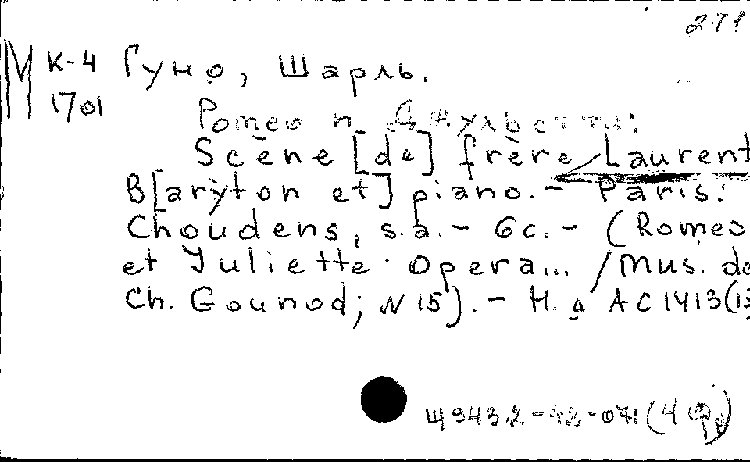 271
М К-4 Гуно, Шарль.
1701
Ромео и Джульетта:
Scène [de] frère Laurent
B[aryton et] piano. - Paris:
Choudens, s.a. - 6c. - (Romeo
et Juliette. Opera... / Mus. de
Ch. Gounod; N 15). - Н. д. AC 1413(15